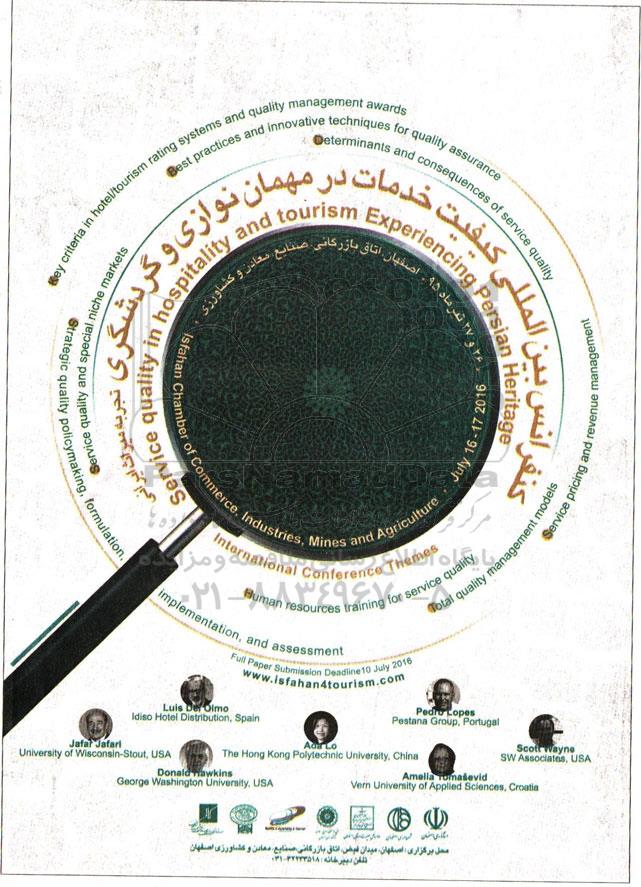 Key criteria in hotel/tourism rating systems and quality management awards
Best practices and innovative techniques for quality assurance
Determinants and consequences of service quality
کنفرانس بین المللی کیفیت خدمات در مهمان نوازی و گردشگری
Service quality in hospitality and tourism Experiencing Persian Heritage
۲۶ و ۲۷ تیر ماه ۹۵ - اصفهان اتاق بازرگانی صنایع معادن و کشاورزی
Isfahan Chamber of Commerce, Industries, Mines and Agriculture
July 16 - 17 2016
Service quality and special niche markets
Strategic quality policymaking, formulation,
implementation, and assessment
Service pricing and revenue management
Total quality management models
Human resources training for service quality
International Conference Themes
ParsNamadData
پایگاه اطلاع رسانی مناقصه و مزایده
۰۲۱-۸۸۳۴۹۶۷۰-۵
Full Paper Submission Deadline10 July 2016
www.isfahan4tourism.com
Luis Del Olmo
Idiso Hotel Distribution, Spain
Pedro Lopes
Pestana Group, Portugal
Jafar Jafari
University of Wisconsin-Stout, USA
Ada Lo
The Hong Kong Polytechnic University, China
Scott Wayne
SW Associates, USA
Donald Hawkins
George Washington University, USA
Amelia Tomaševid
Vern University of Applied Sciences, Croatia
محل برگزاری : اصفهان، میدان فیض، اتاق بازرگانی، صنایع، معادن و کشاورزی اصفهان
تلفن دبیرخانه : ۳۲۲۲۳۵۱۸-۰۳۱